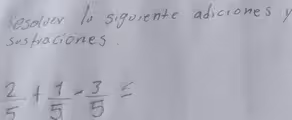 resolver la siguiente adiciones y
sustraciones.
2/5 + 1/5 - 3/5 =